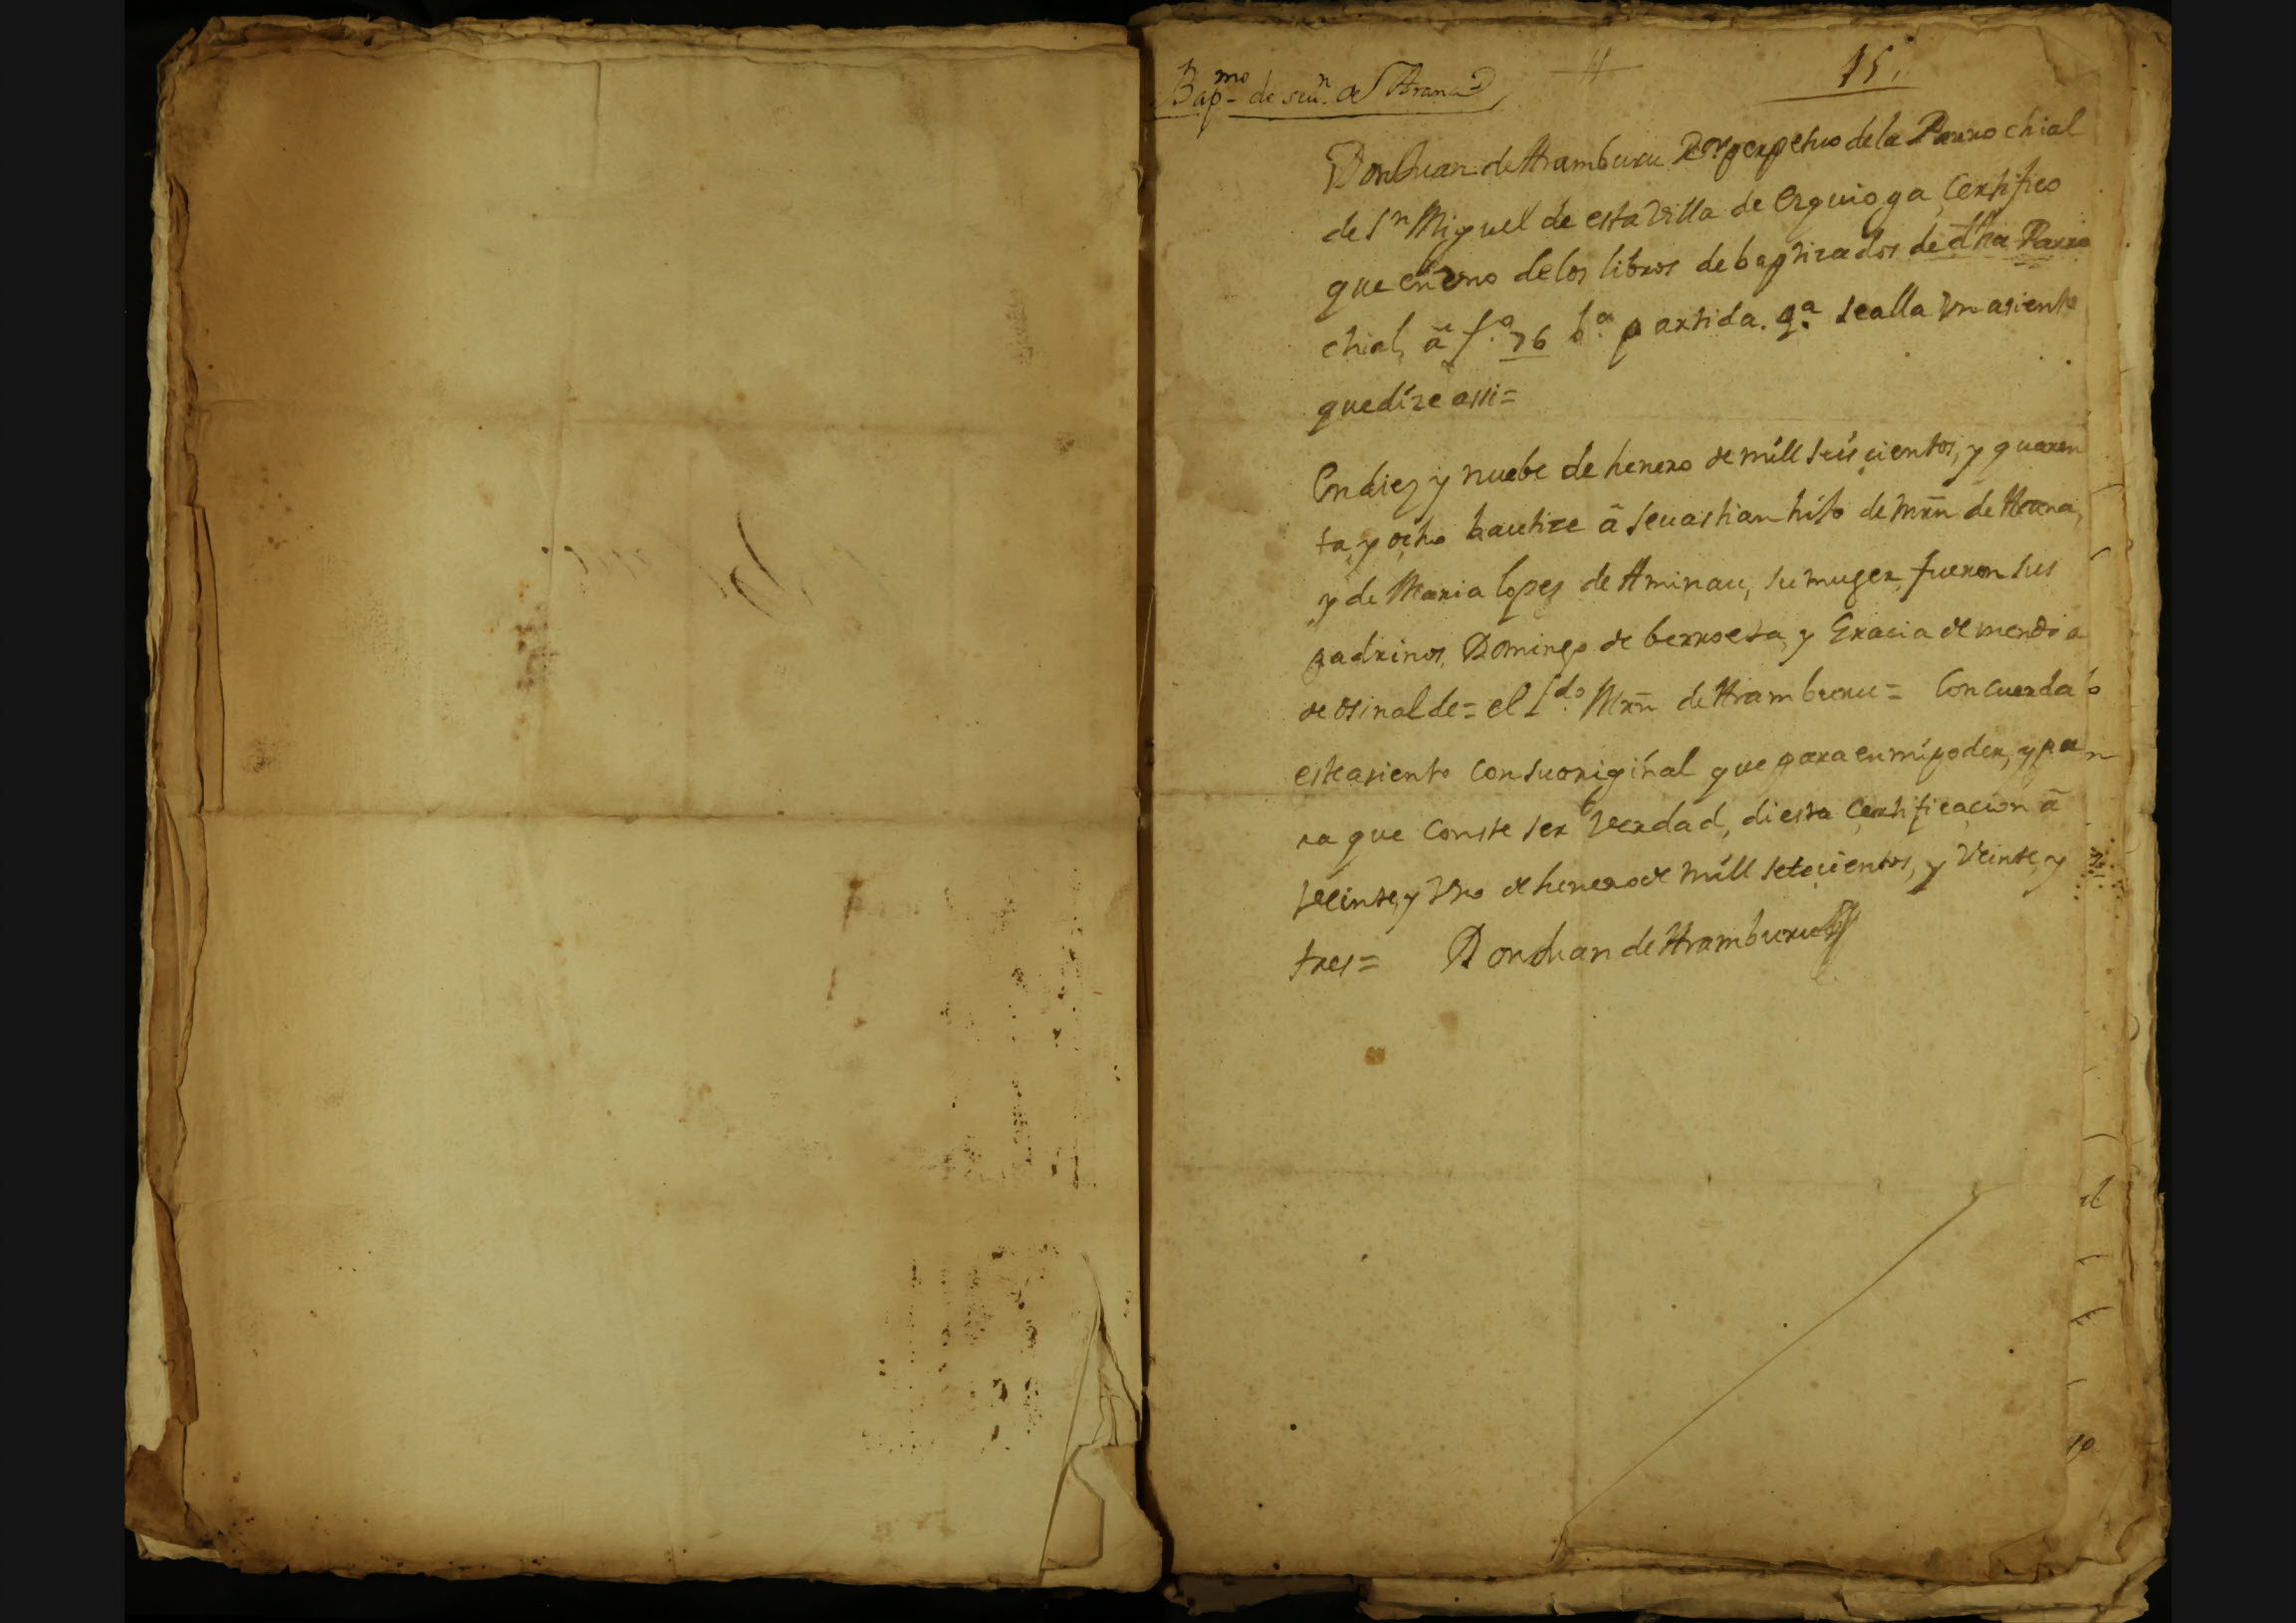 Bapmo de seun de Arana
15
Don Juan de Aramburu Ror perpetuo de la Parrochial
de Sn Miguel de esta Villa de Ezquioga, Certifico
que en vno de los libros de baptizados de dha Parro
chial, â fo 76 ba partida. qa se alla vn asiento
que díze assi=
En diez y nuebe de henero de mill seiscientos, y quaren
ta, y ocho bautize â seuastian hijo de Mrn de Arana,
y de Maria lopez de Aminau, su muger, fueron sus
padrinos, Domingo de berroeta, y Gracia de mendia
de osinalde= el Ldo Mrn de Aramburu= Concuerda
este asiento con su original que para en mi poder, y pa
ra que Conste ser Verdad, di esta Certificacion â
Veinte, y Vno de henero de mill setecientos, y Veinte, y
tres= Don Juan de Aramburu